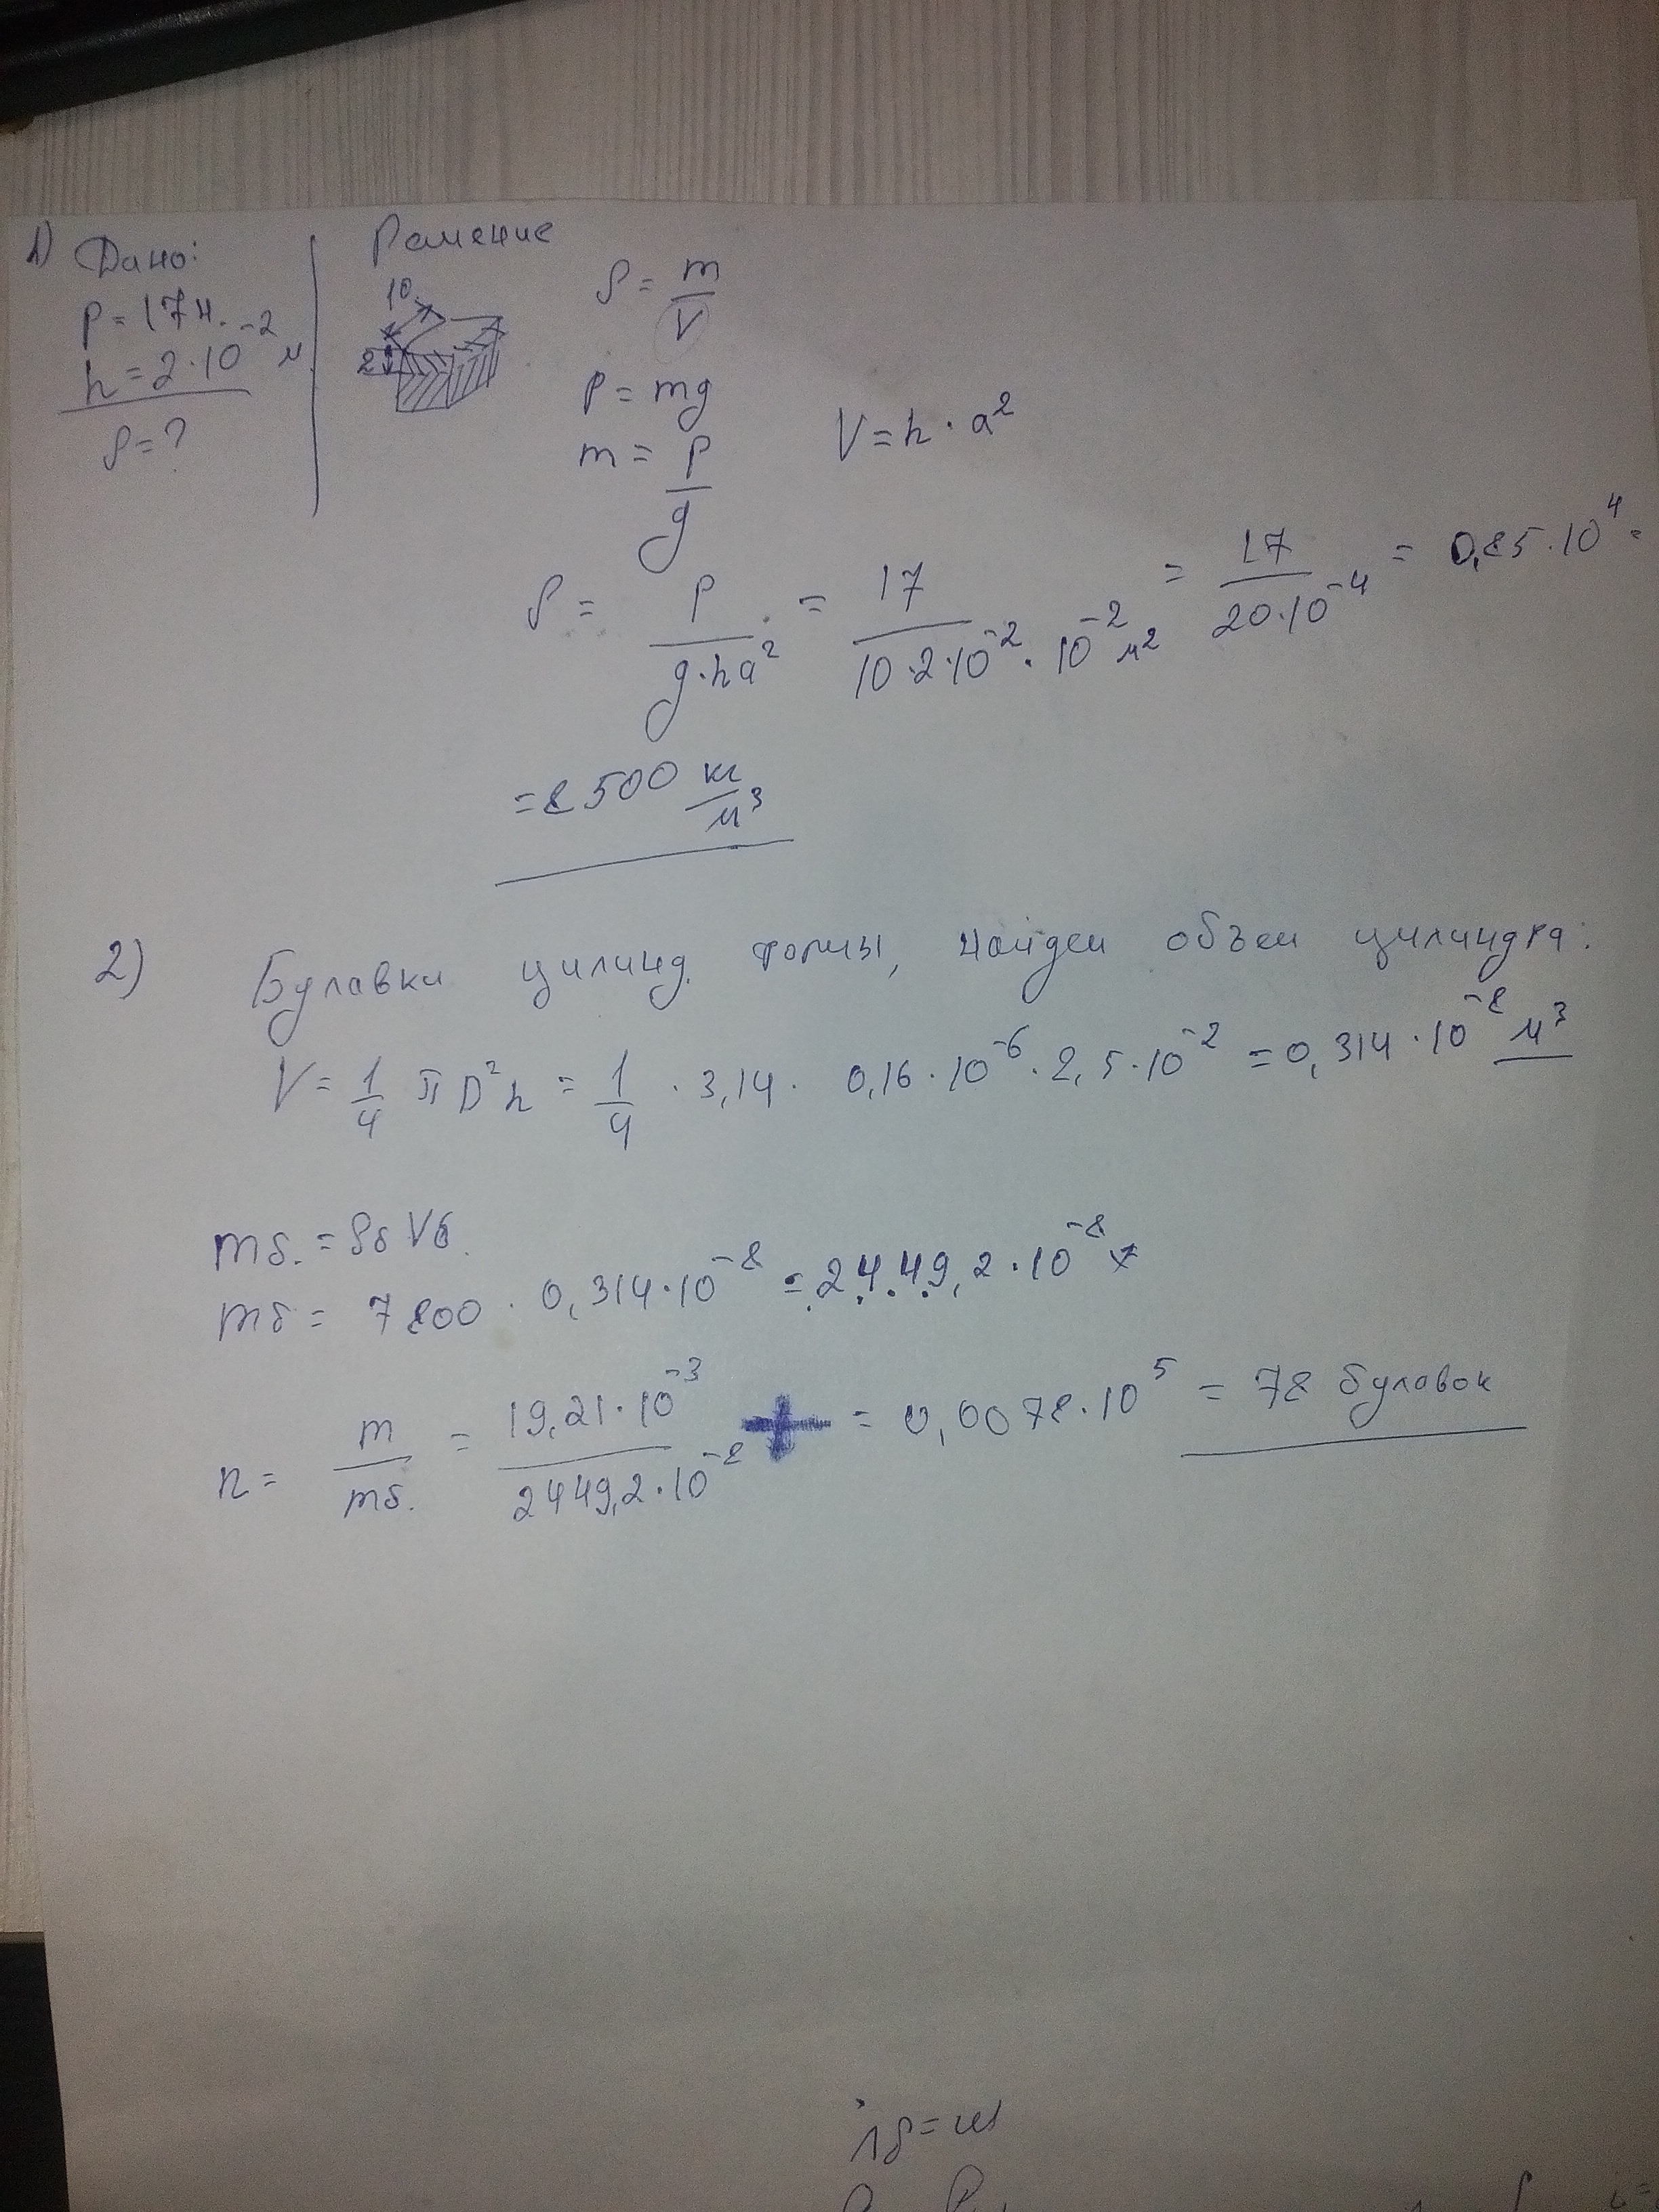 1) Дано:
P = 17 н.
h = 2·10⁻² м
ρ = ?
Решение
10
2
ρ = m/V
P = mg
m = P/g
V = h · a²
ρ = P/(g·ha²) = 17/(10·2·10⁻²·10⁻² м²) = 17/(20·10⁻⁴) = 0,85·10⁴ =
= 8500 кг/м³
2) Булавки цилинд. формы, найдем объем цилиндра:
V = 1/4 πD²h = 1/4 · 3,14 · 0,16·10⁻⁶ · 2,5·10⁻² = 0,314·10⁻⁸ м³
mб. = ρб Vб.
mб = 7800 · 0,314·10⁻⁸ = 2449,2·10⁻⁸
n = m/mб. = 19,21·10⁻³/2449,2·10⁻⁸ = 0,0078·10⁵ = 78 булавок